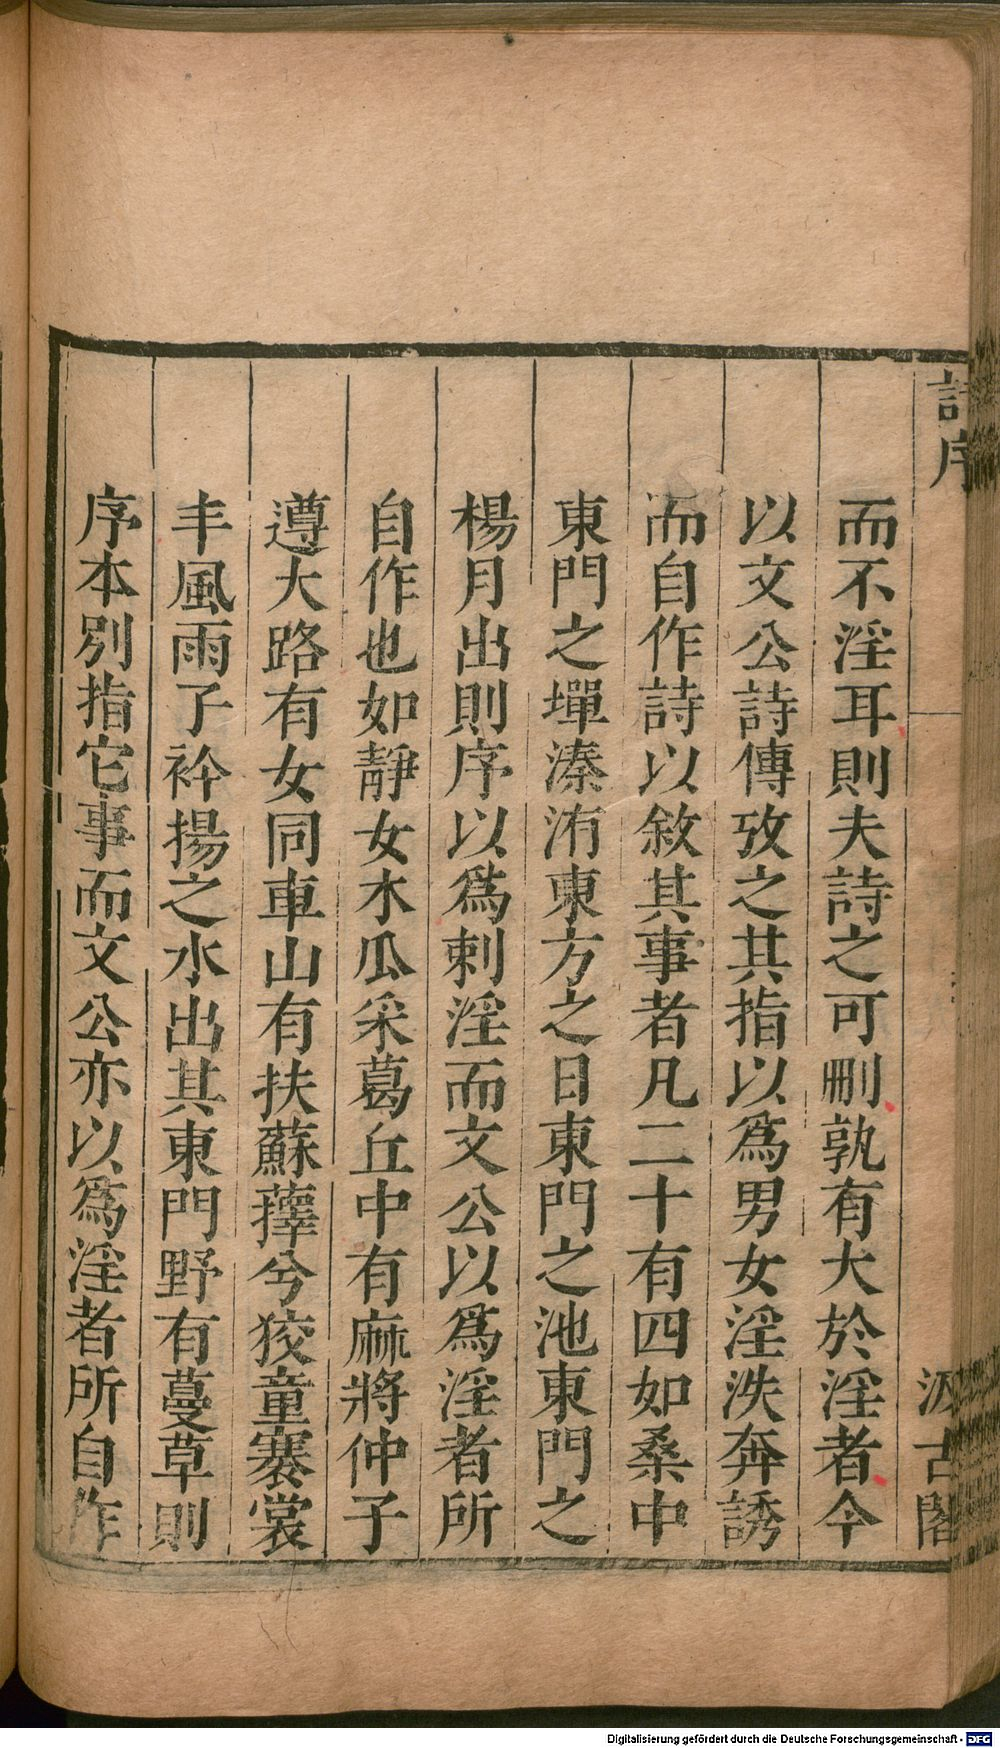 詩序
汲古閣
而不淫耳則夫詩之可刪孰有大於淫者今
以文公詩傳攷之其指以爲男女淫泆奔誘
而自作詩以敘其事者凡二十有四如桑中
東門之墠溱洧東方之日東門之池東門之
楊月出則序以爲刺淫而文公以爲淫者所
自作也如靜女木瓜采葛丘中有麻將仲子
遵大路有女同車山有扶蘇蘀兮狡童褰裳
丰風雨子衿揚之水出其東門野有蔓草則
序本別指它事而文公亦以爲淫者所自作
Digitalisierung gefördert durch die Deutsche Forschungsgemeinschaft - DFG